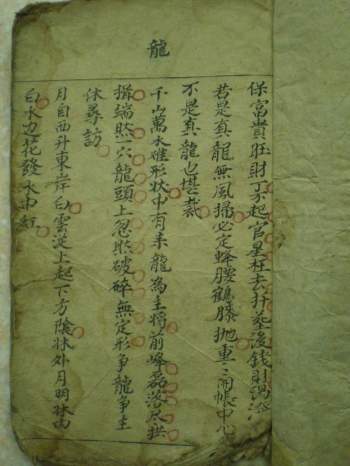 龍
保富貴旺財丁起官星在去扦墓後錢財
若是真龍無風掃必定蜂腰鶴膝拋重〻開帳中心
不是真龍也堪裁
千山萬水难形状中有来龍為主將前峰磊落尽拱
揖端然一穴龍頭上忽然破碎無定形争龍争主
休尋訪
月自西升東岸白雲從上起下方陰林外月明林內
白水边花發水中紅